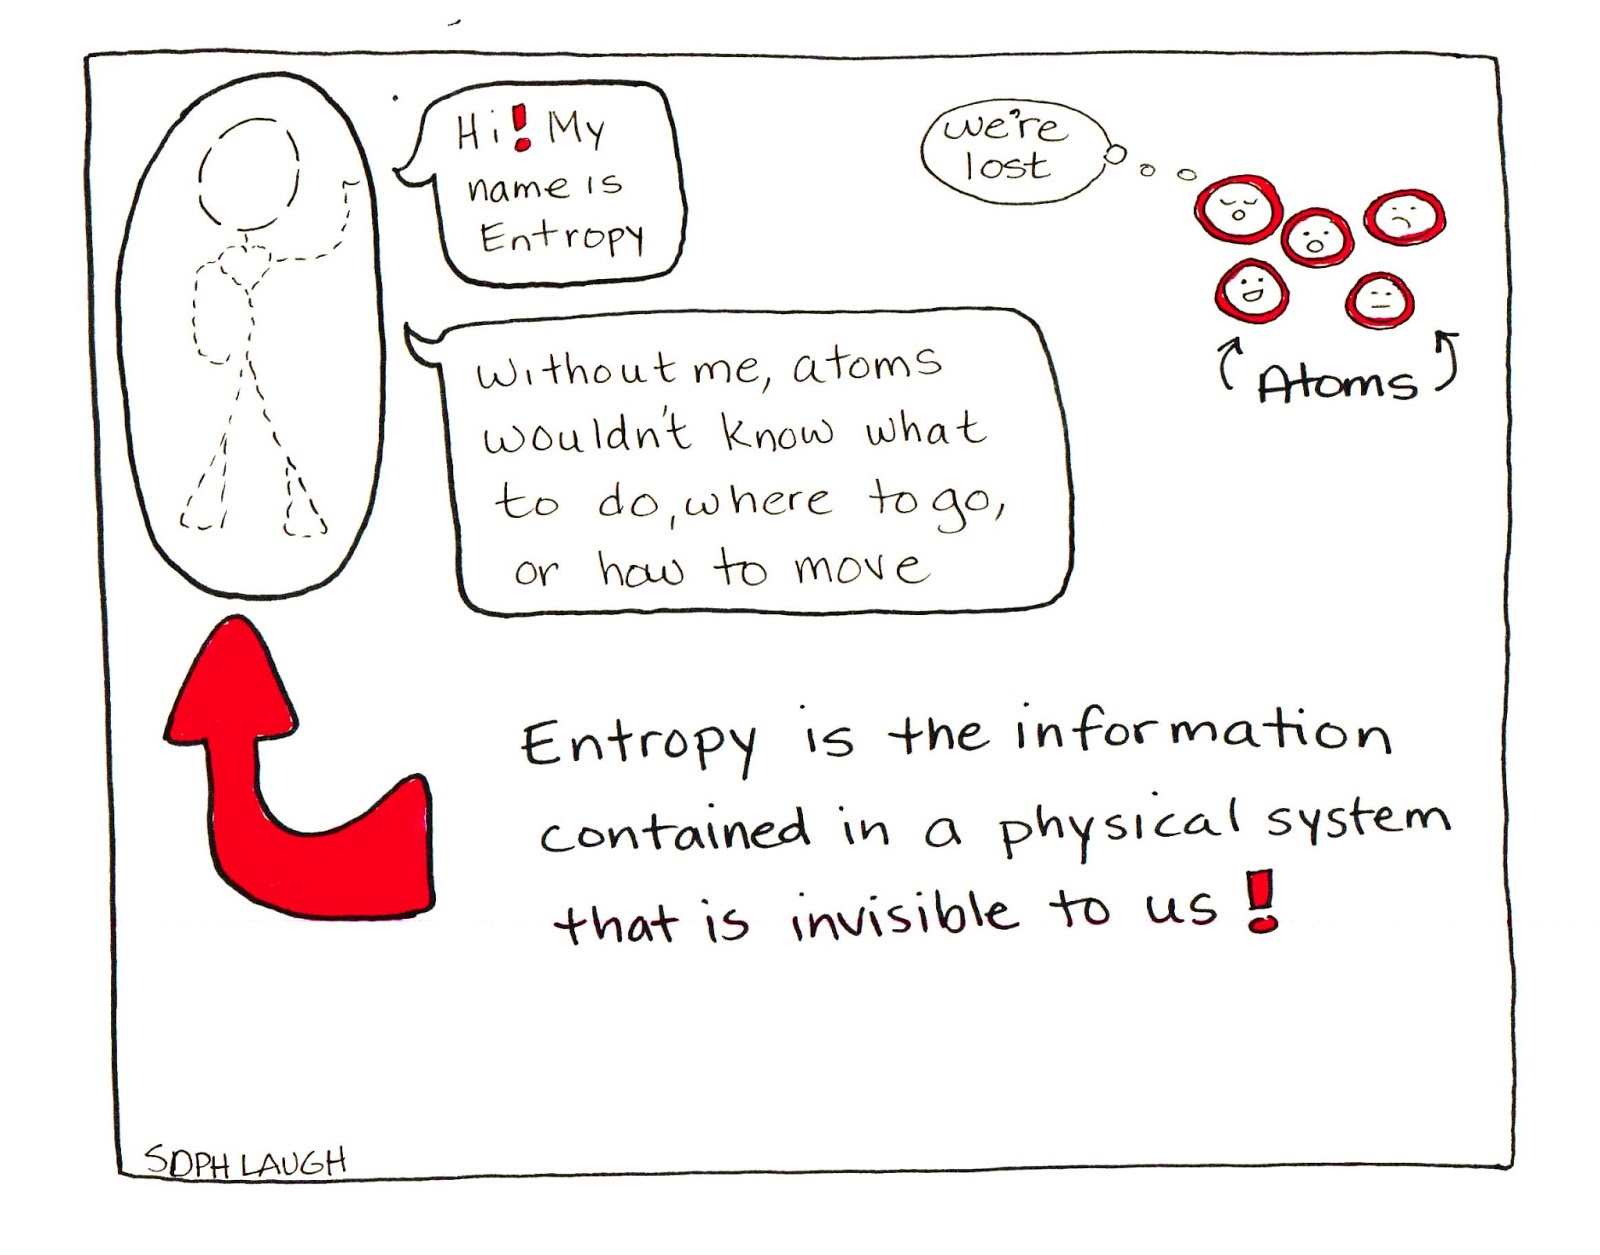 Hi! My
name is
Entropy
we're
lost
Without me, atoms
wouldn't know what
to do, where to go,
or how to move
Atoms
Entropy is the information
contained in a physical system
that is invisible to us!
SOPH LAUGH